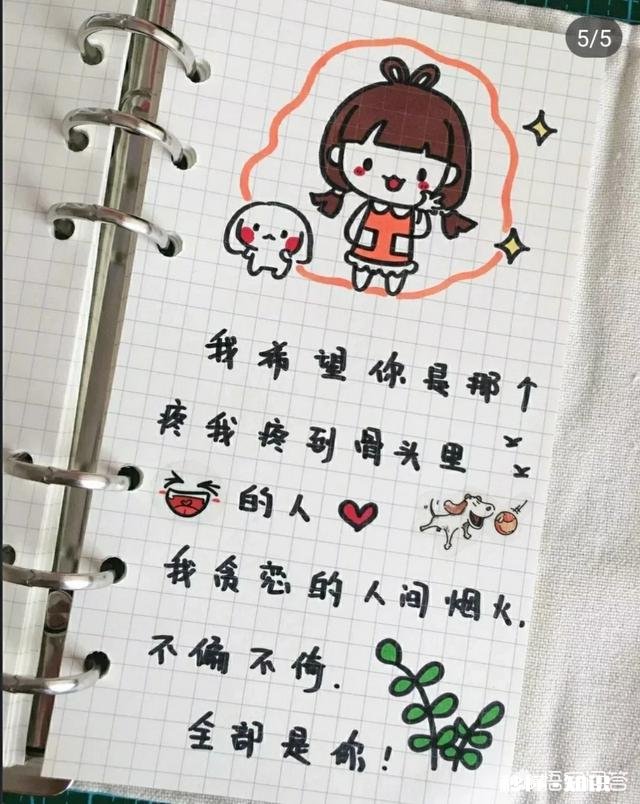 5/5
我希望你是那个
疼我疼到骨头里
的人
我贪恋的人间烟火.
不偏不倚.
全部是你!